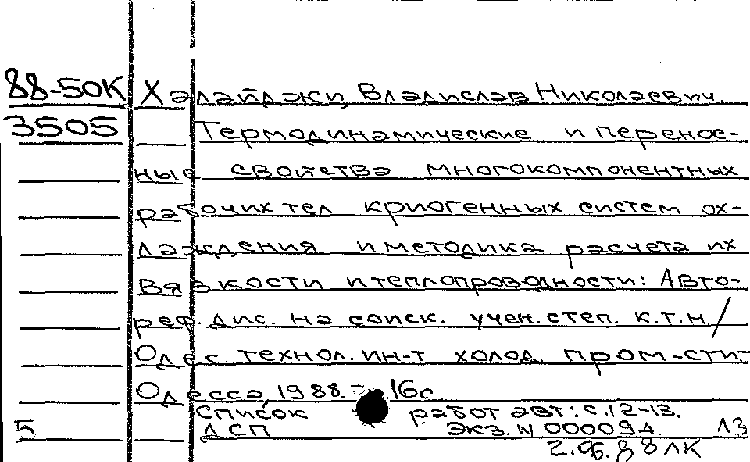 88-50К Халайджи, Владислав Николаевич.
3505 Термодинамические и перенос-
ные свойства многокомпонентных
рабочих тел криогенных систем ох-
лаждения и методика расчета их
вязкости и теплопроводности: Авто-
реф. дис. на соиск. учен. степ. к.т.н/
Одес. технол. ин-т холод. пром-сти.
Одесса, 1988. - 16с
Список работ авт.: с.12-13.
ДСП Экз. N 000094
2.06.88 ЛК